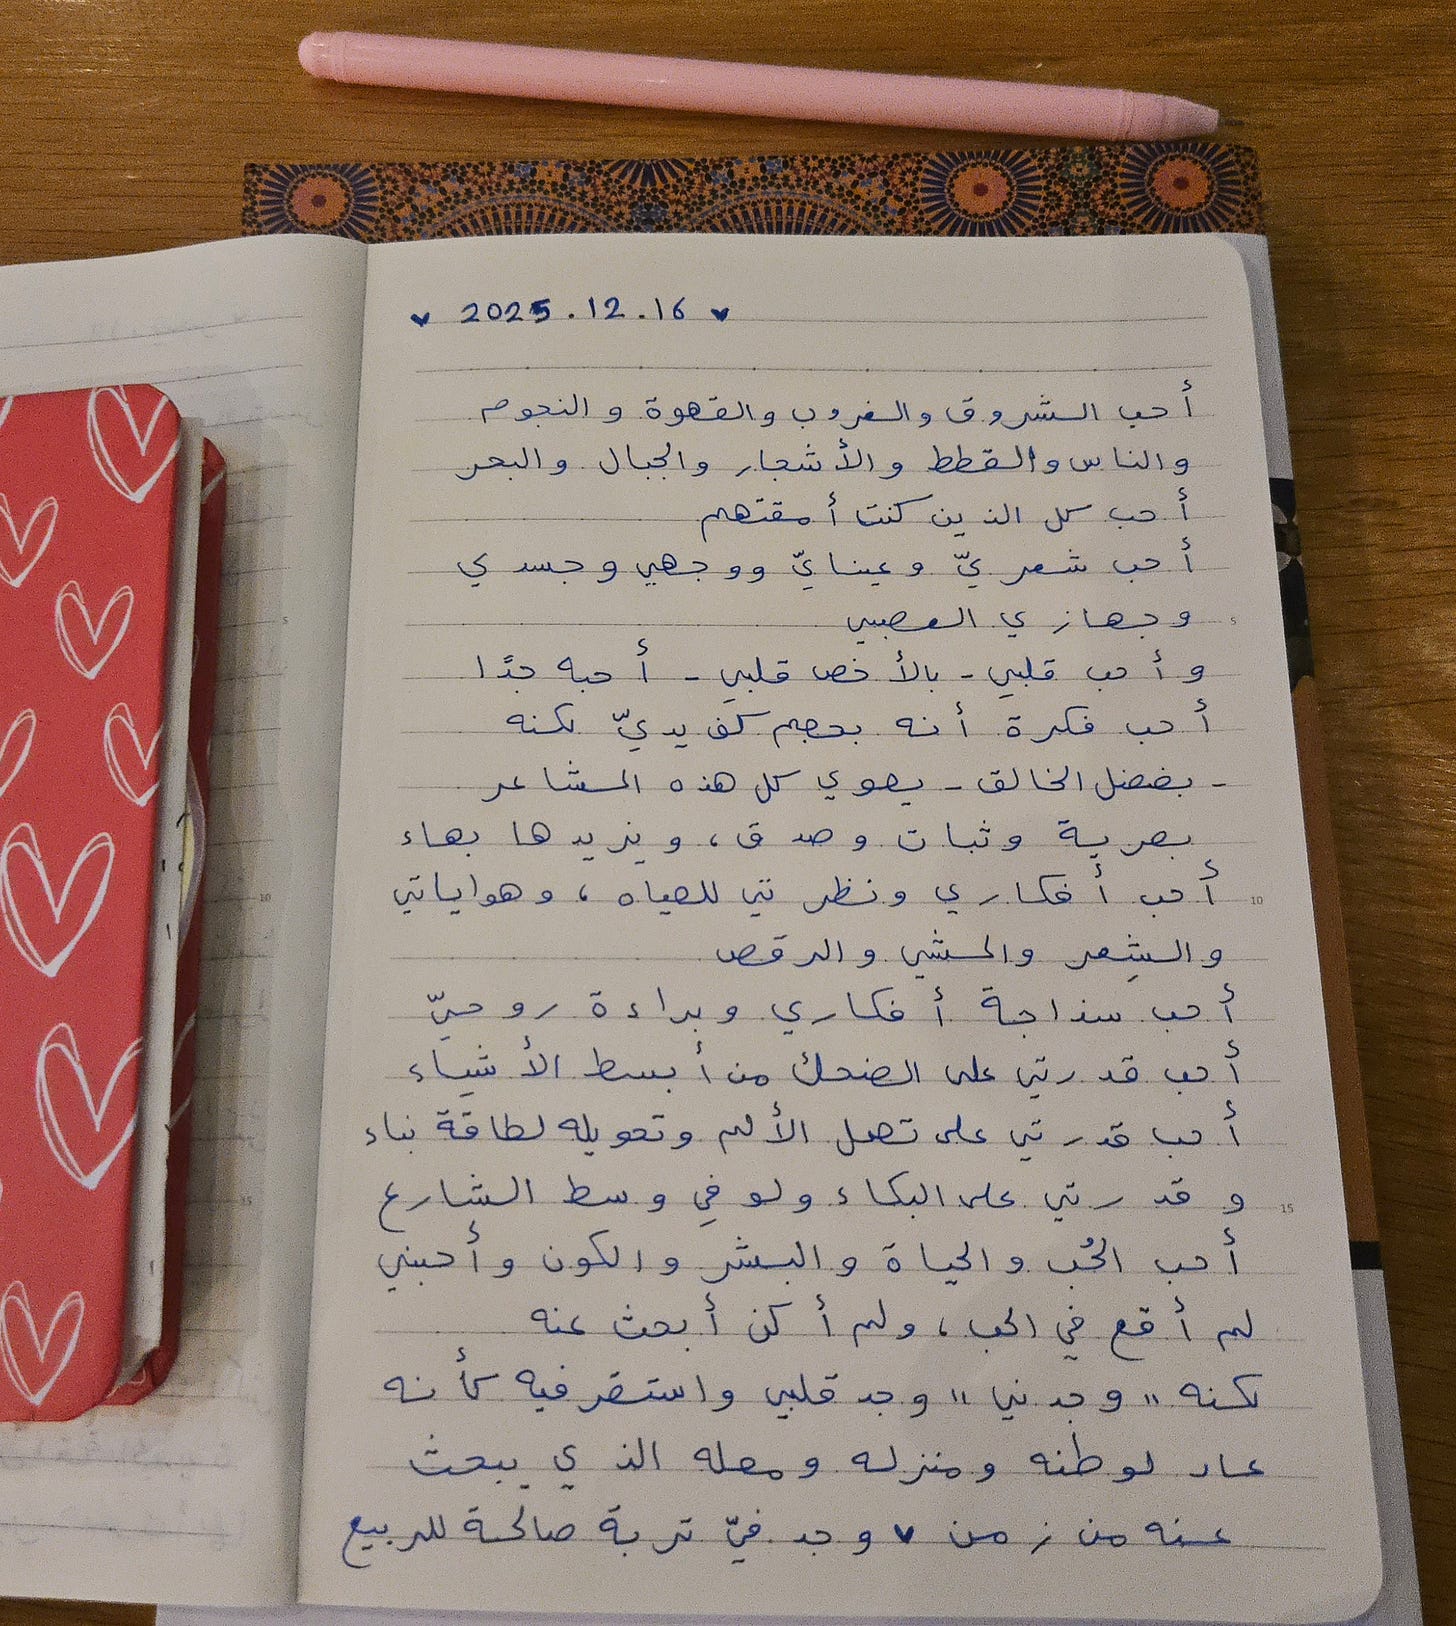 ♥ 2025.12.16 ♥
أحب الشروق والغروب والقهوة والنجوم
والناس والقطط والأشجار والجبال والبحر
أحب كل الذين كنت أمقتهم
أحب شعريّ وعينايّ ووجهي وجسدي
5
وجهازي العصبي
وأحب قلبي - بالأخص قلبي - أحبه جدًا
أحب فكرة أنه بحجم كف يديّ لكنه
- بفضل الخالق - يحوي كل هذه المشاعر
بحرية وثبات وصدق، ويزيدها بهاء
10
أحب أفكاري ونظرتي للحياه، وهواياتي
والشِعر والمشي والرقص
أحب سذاجة أفكاري وبراءة روحيّ
أحب قدرتي على الضحك من أبسط الأشياء
أحب قدرتي على تحمل الألم وتحويله لطاقة بناء
15
وقدرتي على البكاء ولو في وسط الشارع
أحب الحُب والحياة والبشر والكون وأحبني
لم أقع في الحب، ولم أكن أبحث عنه
لكنه "وجدني" وجد قلبي واستقر فيه كأنه
عاد لوطنه ومنزله ومحله الذي يبحث
عنه من زمن ♥ وجد فيّ تربة صالحة للربيع